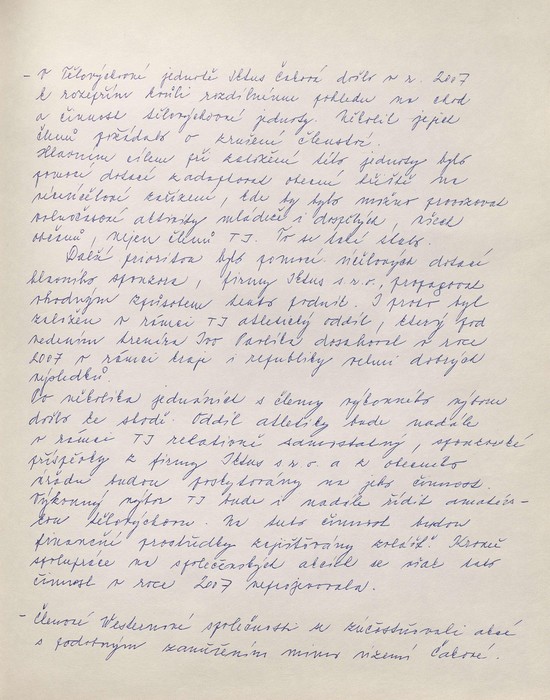 - V Tělovýchovné jednotě Iktus Čaková došlo v r. 2007
k rozepřím kvůli rozdílnému pohledu na chod
a činnost tělovýchovné jednoty. Několik jejich
členů požádalo o zrušení členství.
Hlavním cílem při založení této jednoty bylo
pomocí dotací zadaptovat obecní hřiště na
víceúčelové zařízení, kde by bylo možno provozovat
volnočasové aktivity mládeže i dospělých, všech
občanů, nejen členů TJ. To se také stalo.
Další prioritou bylo pomocí účelových dotací
hlavního sponzora, firmy Iktus s.r.o., propagovat
vhodným způsobem tento podnik. I proto byl
založen v rámci TJ atletický oddíl, který pod
vedením trenéra Ivo Pavlíka dosahoval v roce
2007 v rámci kraje i republiky velmi dobrých
výsledků.
Po několika jednáních s členy výkonného výboru
došlo ke shodě. Oddíl atletiky bude nadále
v rámci TJ relativně samostatný, sponzorské
příspěvky z firmy Iktus s.r.o. a z obecního
úřadu budou poskytovány na jeho činnost.
Výkonný výbor TJ bude i nadále řídit amatér-
skou tělovýchovu. Na tuto činnost budou
finanční prostředky zajišťovány zvlášť. Kromě
spolupráce na společenských akcích se však tato
činnost v roce 2007 neprojevovala.
- Členové Westernové společnosti se zúčastňovali akcí
s podobným zaměřením mimo území Čakové.